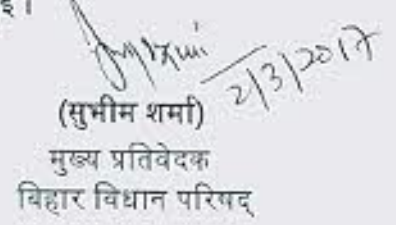 ई।
2/3/2017
(सुभीम शर्मा)
मुख्य प्रतिवेदक
बिहार विधान परिषद्